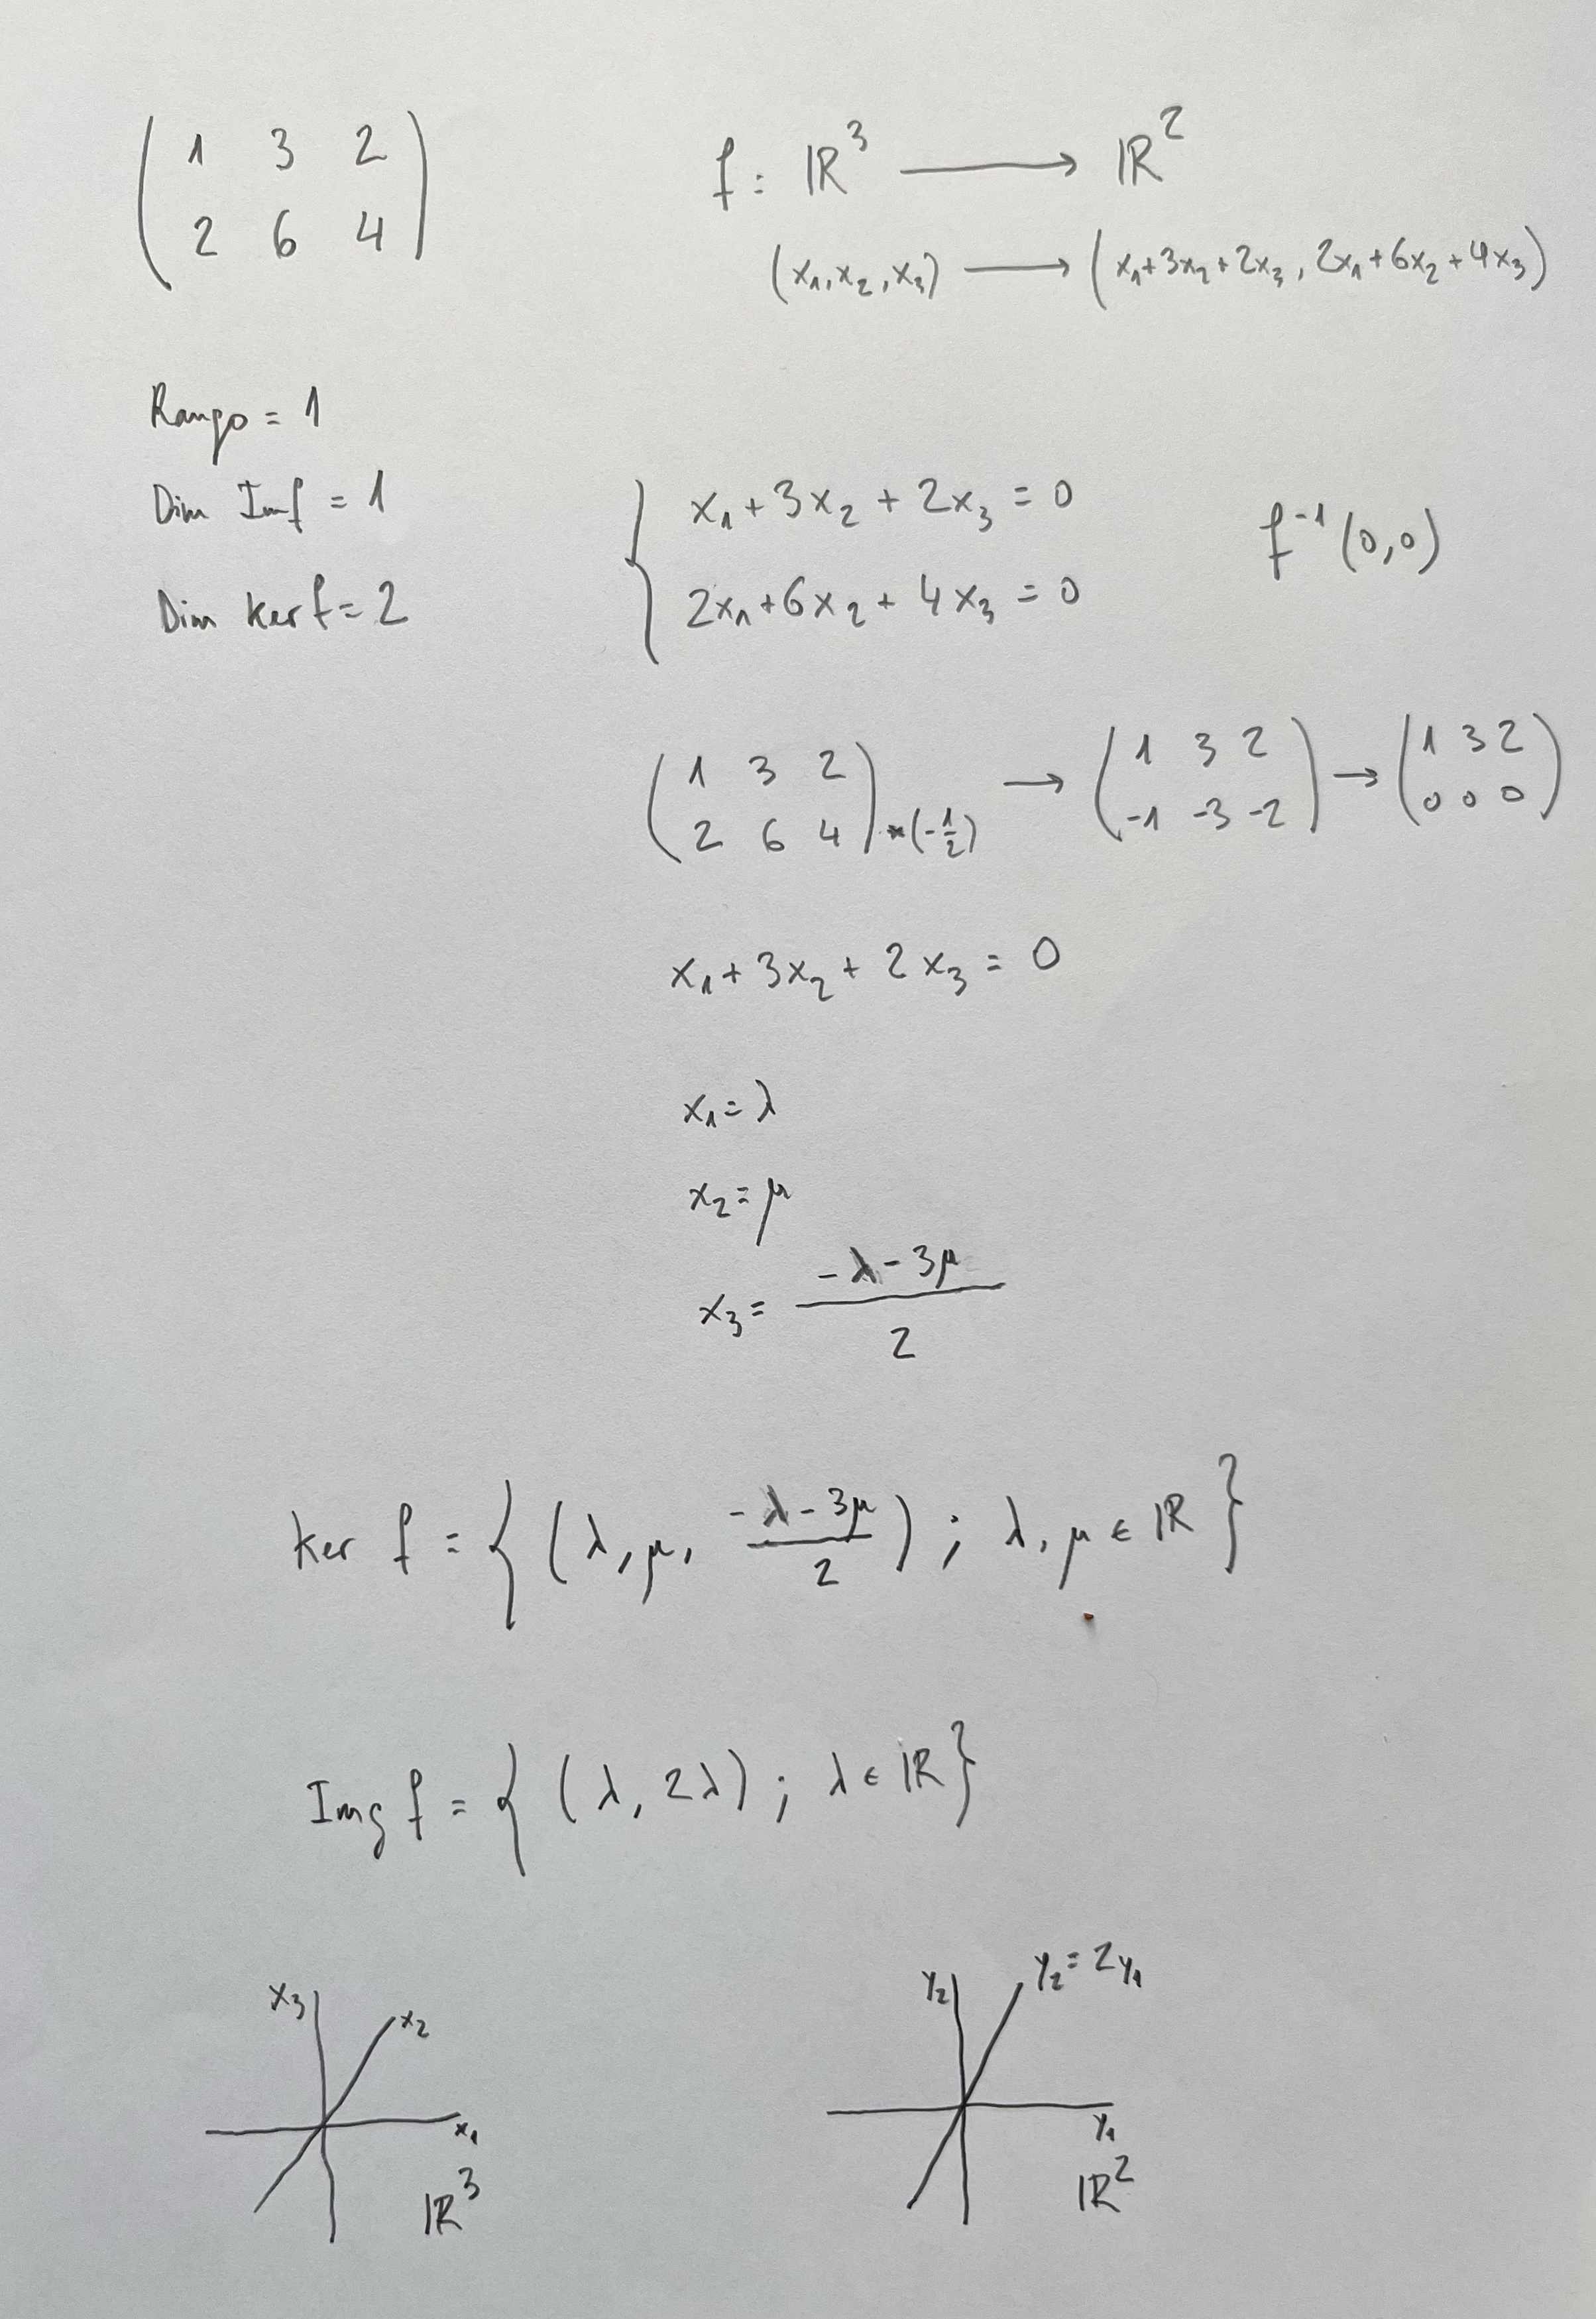 ( 1 3 2 )
( 2 6 4 )
f: ℝ³ ⟶ ℝ²
(x₁, x₂, x₃) ⟶ (x₁+3x₂+2x₃, 2x₁+6x₂+4x₃)
Rango = 1
Dim Imf = 1
Dim Ker f = 2
{ x₁ + 3x₂ + 2x₃ = 0
{ 2x₁ + 6x₂ + 4x₃ = 0
f⁻¹(0,0)
( 1 3 2 ) → ( 1 3 2 ) → ( 1 3 2 )
( 2 6 4 ) *(-1/2) ( -1 -3 -2 ) ( 0 0 0 )
x₁ + 3x₂ + 2x₃ = 0
x₁ = λ
x₂ = μ
x₃ = (-λ - 3μ)/2
Ker f = { (λ, μ, (-λ - 3μ)/2) ; λ, μ ∈ ℝ }
Img f = { (λ, 2λ) ; λ ∈ ℝ }
x₃
x₂
x₁
ℝ³
y₂
y₂ = 2y₁
y₁
ℝ²